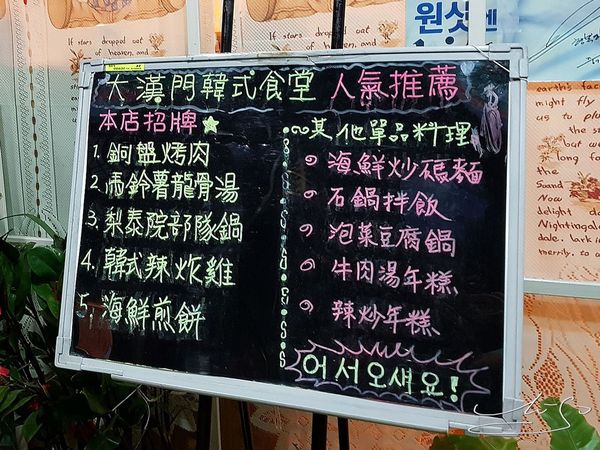 If stars dropped out
of heaven, and
If stars dropped out
of heaven, and
원샷
大漢門韓式食堂 人氣推薦
本店招牌★
1. 銅盤烤肉
2. 馬鈴薯龍骨湯
3. 梨泰院部隊鍋
4. 韓式辣炸雞
5. 海鮮煎餅
~其他單品料理
海鮮炒碼麵
石鍋拌飯
泡菜豆腐鍋
牛肉湯年糕
辣炒年糕
어서오세요!
earth's fac
might fly
us to plu
the st
but we
long fo
the
Soun
Now
delight
Nightingal
dale, lark in
merrily, to a